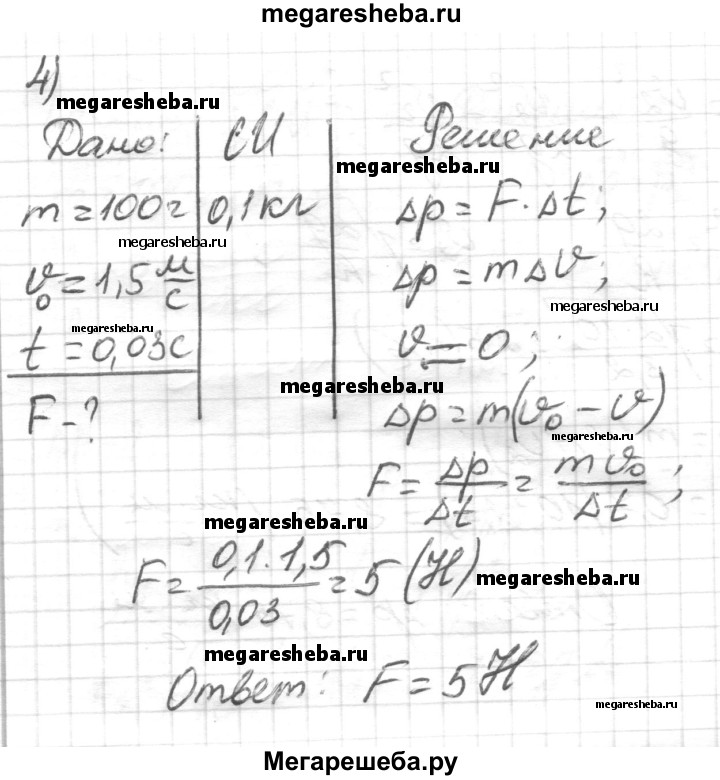 megaresheba.ru
4)
megaresheba.ru
Дано: СИ Решение
megaresheba.ru
m = 100г 0,1 кг Δp = F · Δt;
megaresheba.ru
v₀ = 1,5 м/с Δp = mΔv;
megaresheba.ru
megaresheba.ru
t = 0,03с v = 0;
megaresheba.ru
F - ? Δp = m(v₀ - v)
megaresheba.ru
F = Δp/Δt = mv₀/Δt;
megaresheba.ru
F = 0,1 · 1,5/0,03 = 5 (Н)
megaresheba.ru
megaresheba.ru
Ответ: F = 5 Н
megaresheba.ru
Мегарешеба.ру